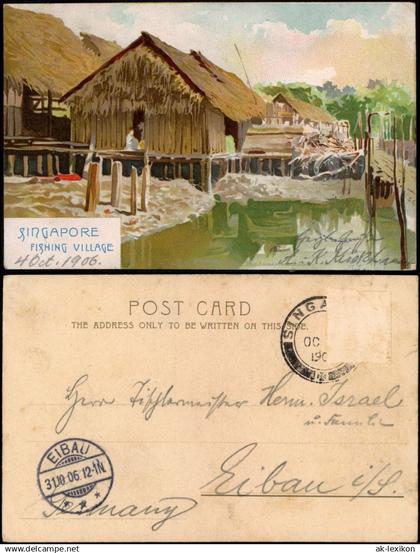 SINGAPORE
FISHING VILLAGE
4 Oct. 1906.
POST CARD
THE ADDRESS ONLY TO BE WRITTEN ON THIS SIDE.
SINGA
OC
190
Herrn Tischlermeister Herm. Israel
u. Familie
EIBAU
31.10.06.12-1N
Eibau i/S.
Germany
www.ansichtskarten-lexikon.de
ak-lexikon.com